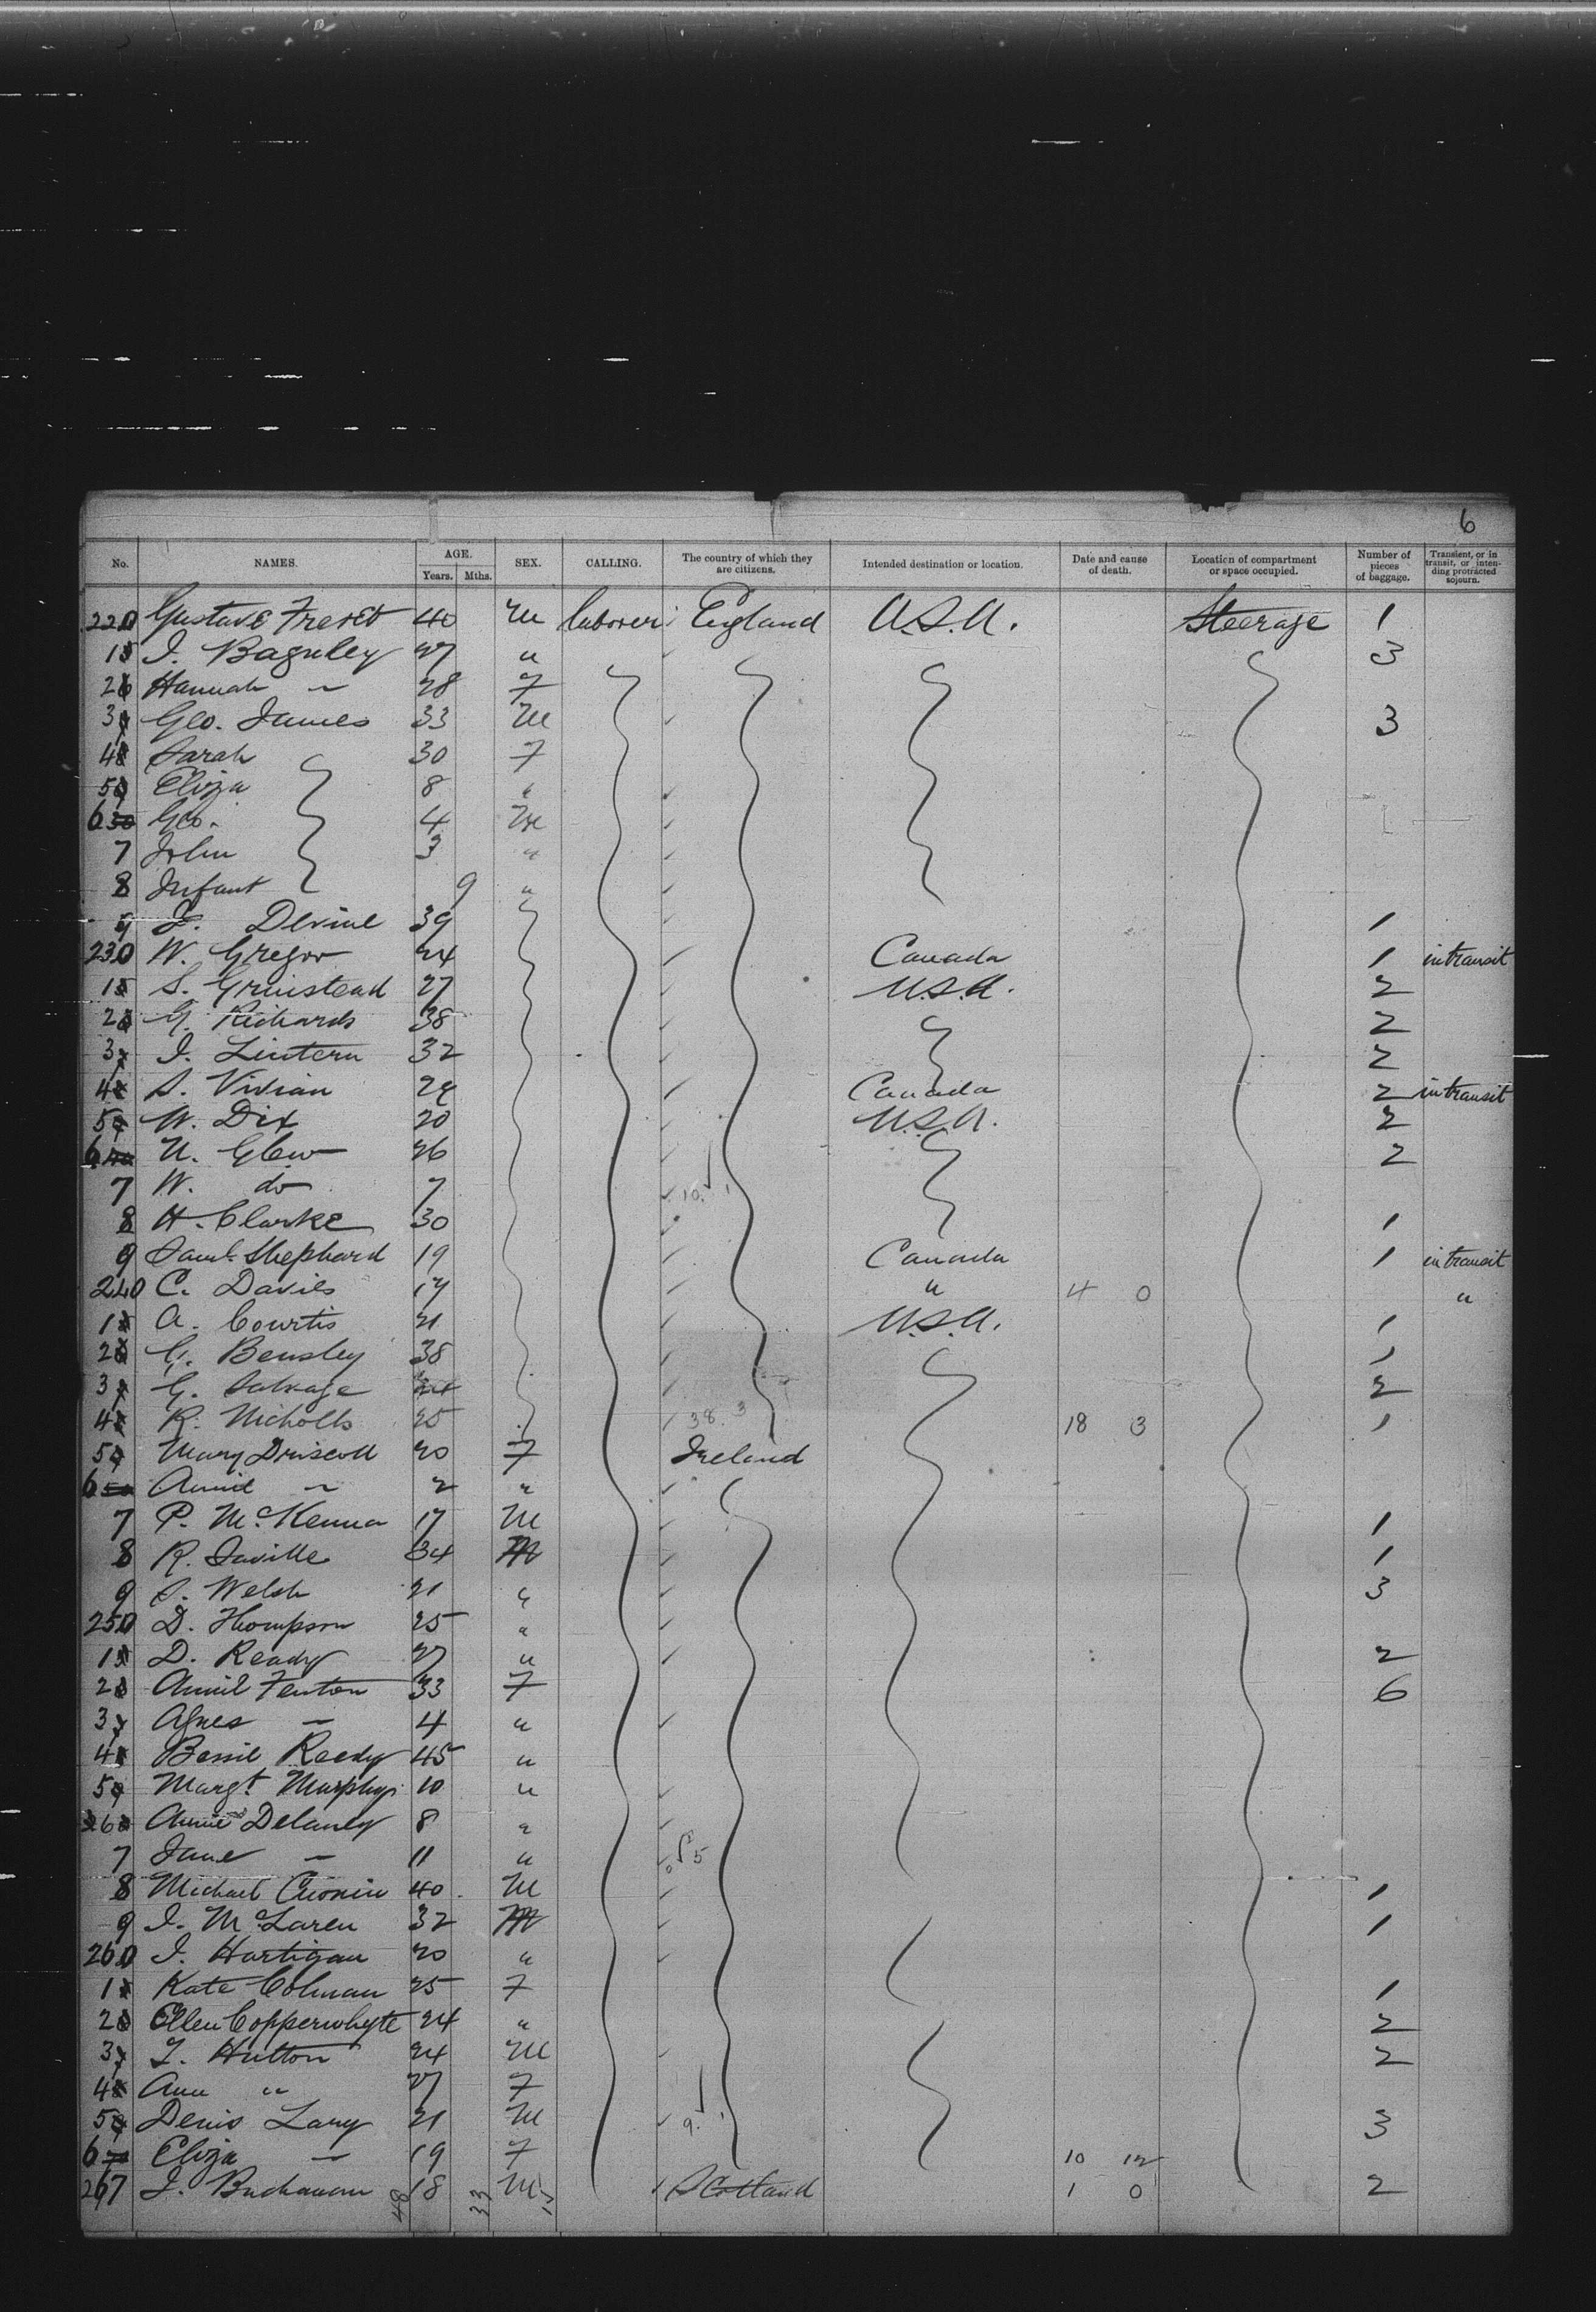 6
No. NAMES. AGE. Years. Mths. SEX. CALLING. The country of which they are citizens. Intended destination or location. Date and cause of death. Location of compartment or space occupied. Number of pieces of baggage. Transient, or in transit, or intending protracted sojourn.
220 Gustave 40 M laborer England U.S.A. Steerage 1
1 I. Baguley 27 " 3
2 Hannah — 28 F
3 Geo. James 33 M 3
4 Sarah 30 F
5 Eliza 8 "
6 Geo. 4 M
7 John 3 "
8 Infant 9 "
9 Devine 39 1
230 W. Gregor 24 Canada 1 in transit
1 S. Grinstead 27 U.S.A. 2
2 G. Richards 38 2
3 I. Lintern 32 2
4 S. Vivian 24 Canada 2 in transit
5 W. Dix 20 U.S.A. 2
6 N. Glew 26 2
7 W. do 7
8 H. Clarke 30 1
9 Saml. Shephard 19 Canada 1 in transit
240 C. Davies 17 " 4 0 "
1 A. Courtis 21 U.S.A. 1
2 G. Bensley 38 1
3 G. Salvage 24 2
4 R. Nicholls 25 38 3 18 3 1
5 Mary Driscoll 20 F Ireland
6 Annie — 2 "
7 P. McKenna 17 M 1
8 R. Saville 34 M 1
9 S. Welsh 21 " 3
250 D. Thompson 25 "
1 D. Ready 27 " 2
2 Annie Fenton 33 F 6
3 Agnes — 4 "
4 Bessie Reedy 45 "
5 Margt. Murphy 10 "
6 Annie Delaney 8 "
7 Jane — 11 "
8 Michael Cronin 40 M 1
9 I. McLaren 32 M 1
260 I. Hartigan 20 "
1 Kate Colman 25 F 1
2 Ellen Copperwhyte 24 " 2
3 T. Hutton 24 M 2
4 Ann " 27 F
5 Denis Lary 21 M 3
6 Eliza — 19 F 10 12
267 I. Buchanan 18 M Scotland 1 0 2
48 33 15